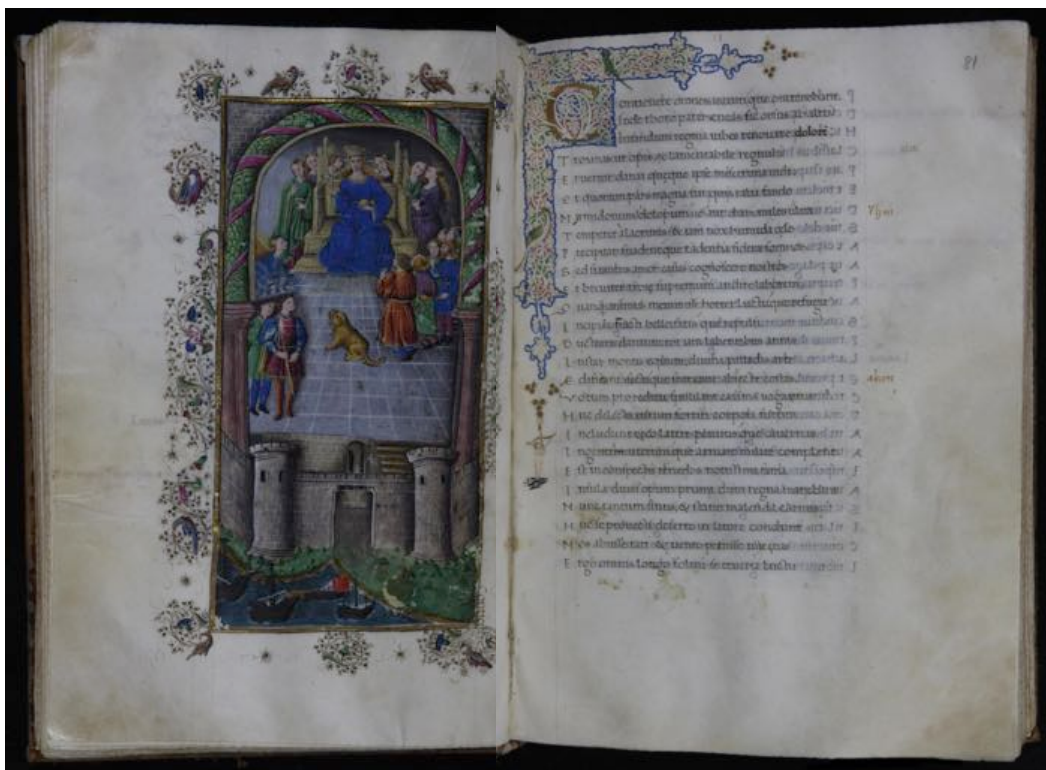 81
Conticuere omnes intentique ora tenebant
Inde thoro pater eneas sic orsus ab alto
Infandum regina iubes renovare dolorem
Troianas ut opes et lamentabile regnum
Eruerint danai queque ipse miserrima vidi
Et quorum pars magna fui quis talia fando
Mirmidonum dolopum ve aut duri miles ulixi
Temperet a lacrimis et iam nox humida celo
Precipitat suadentque cadentia sidera somnos
Sed si tantus amor casus cognoscere nostros
Et breviter troie supremum audire laborem
Quanquam animus meminisse horret luctuque refugit
Incipiam fracti bello fatisque repulsi
Ductores danaum tot iam labentibus annis
Instar montis equum divina palladis arte
Edificant sectaque intexunt abiete costas
Votum pro reditu simulant ea fama vagatur
Huc delecta virum sortiti corpora furtim
Includunt ceco lateri penitusque cavernas
Ingentis uterumque armato milite complent
Est in conspectu tenedos notissima fama
Insula dives opum priami dum regna manebant
Nunc tantum sinus et statio male fida carinis
Huc se provecti deserto in litore condunt
Nos abiisse rati et vento petiisse
Ergo omnis longo solvit se teucria luctu